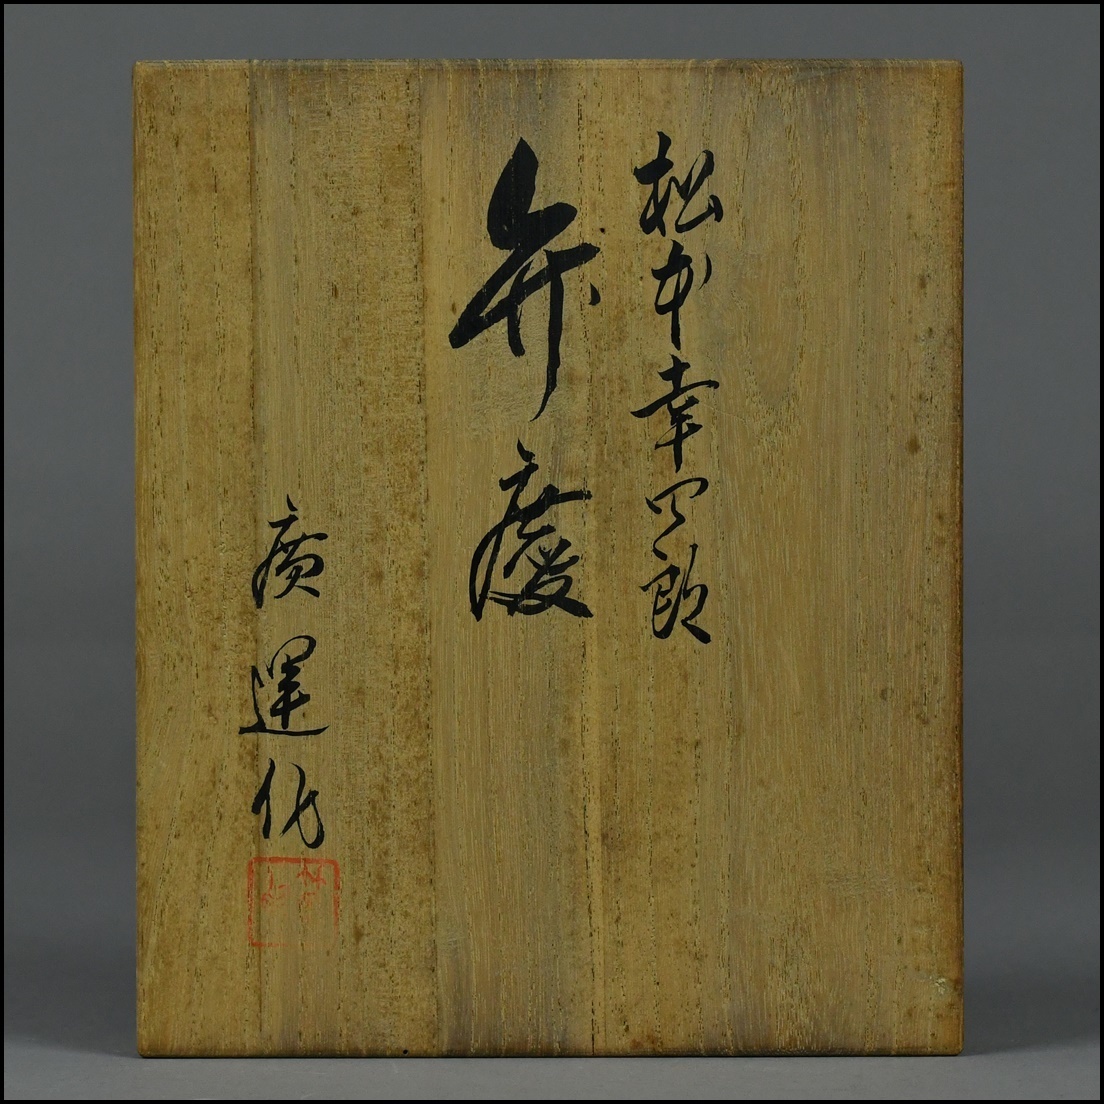 松本幸四郎
弁慶
廣運作